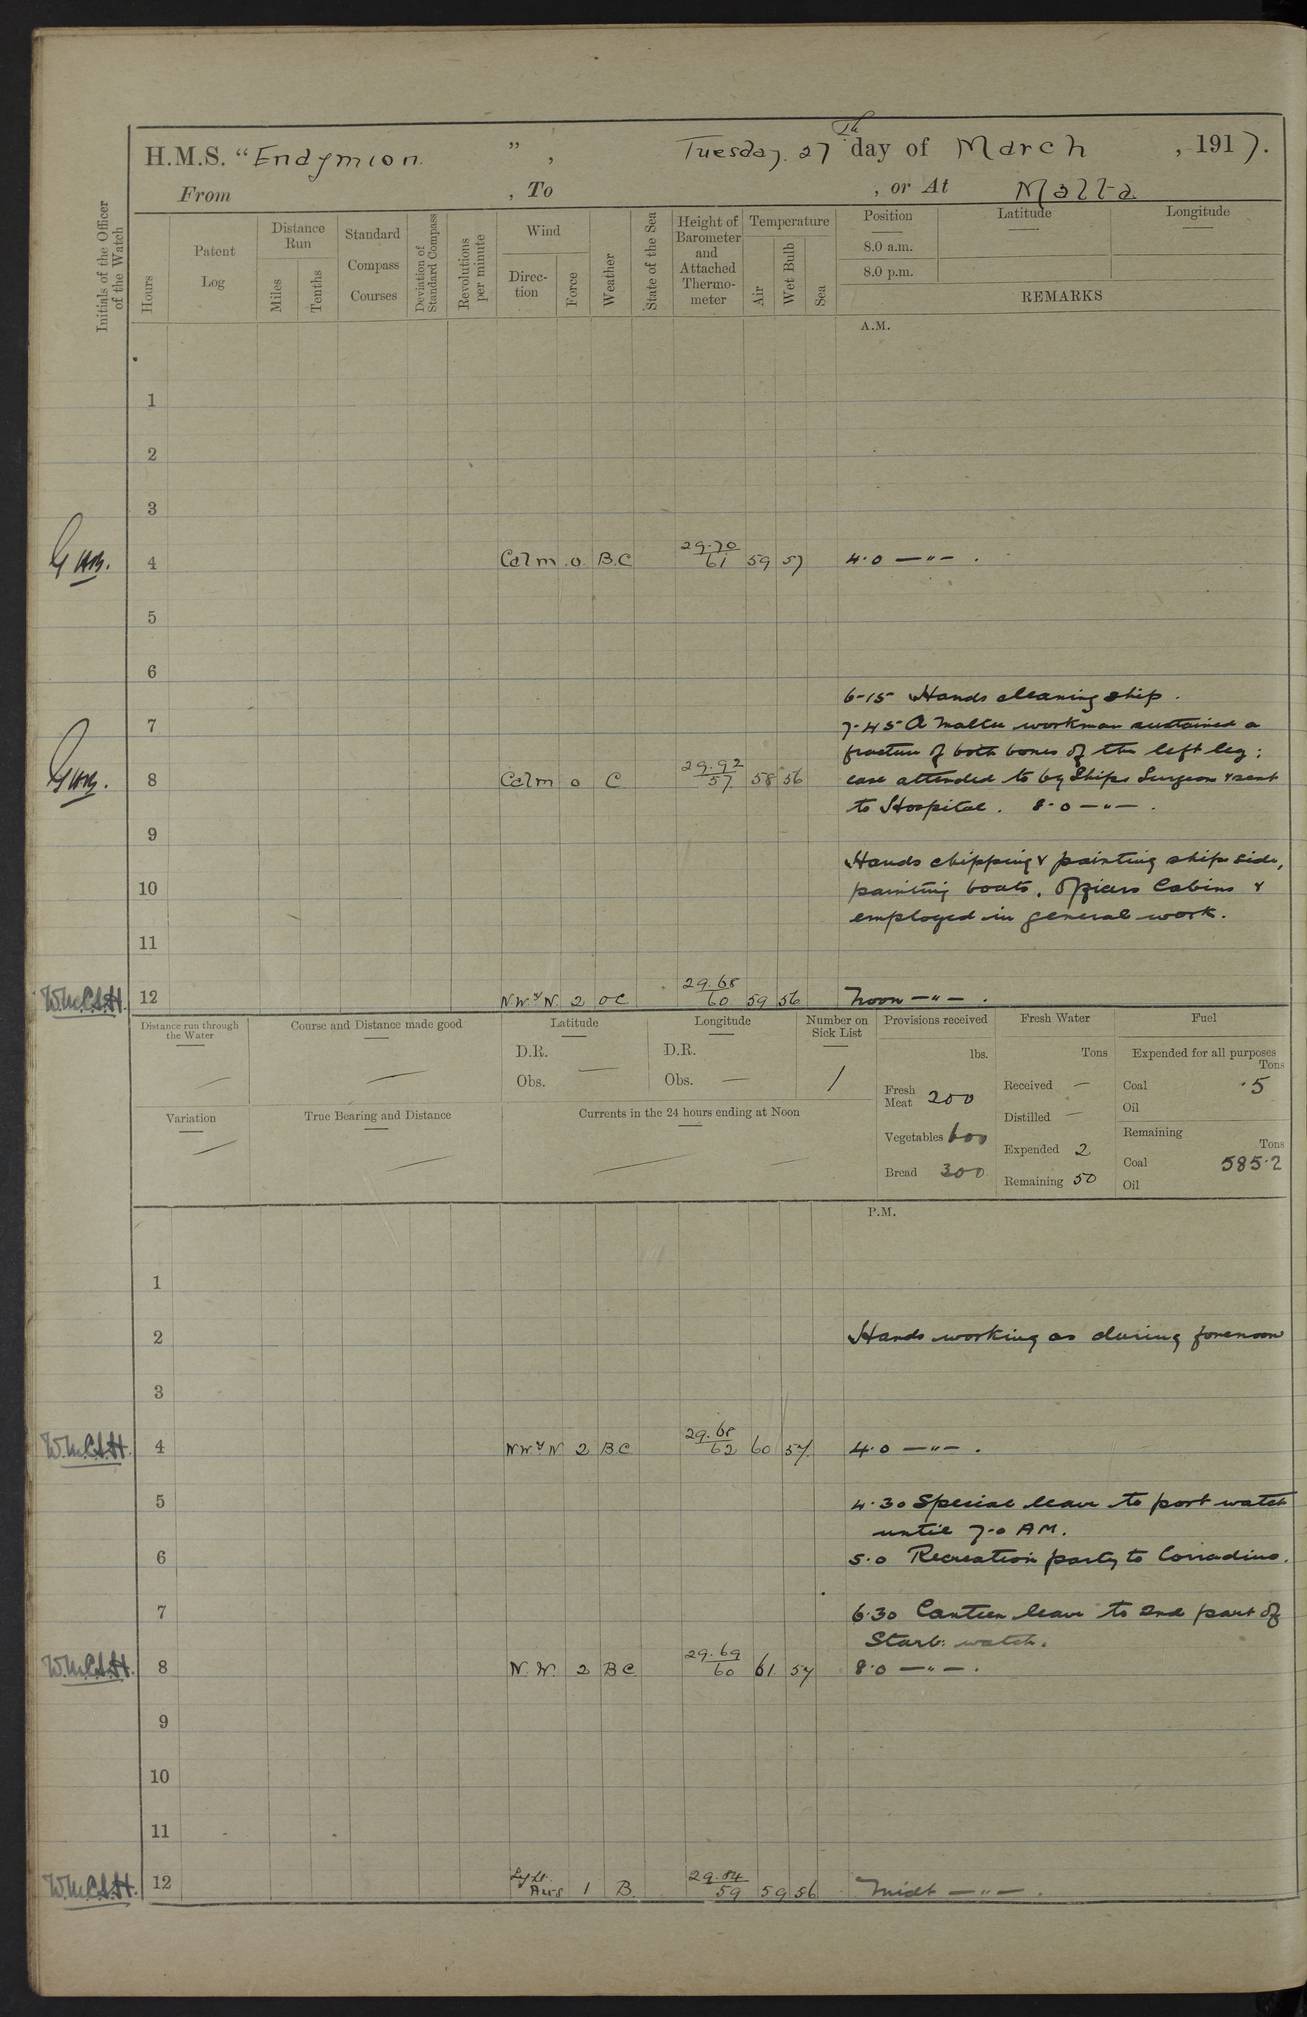 H.M.S. "Endymion.", Tuesday. 27th day of March, 1917.
From , To , or At Malta
Initials of the Officer of the Watch
Hours
Patent Log
Distance Run
Miles
Tenths
Standard Compass Courses
Deviation of Standard Compass
Revolutions per minute
Wind
Direc-tion
Force
Weather
State of the Sea
Height of Barometer and Attached Thermo-meter
Temperature
Air
Wet Bulb
Sea
Position Latitude Longitude
8.0 a.m.
8.0 p.m.
REMARKS
A.M.
1
2
3
4 Calm 0 B.C 29.70 61 59 57 4.0 —"— .
5
6
6-15 Hands cleaning ship.
7 7-45 A Maltee workman sustained a
fracture of both bones of the left leg:
8 Calm 0 C 29.92 57 58 56 case attended to by Ships Surgeon & sent
to Hospital. 8.0 —"— .
9
Hands chipping & painting ship side,
10 painting boats, Officers Cabins &
employed in general work.
11
W.McC.S.H. 12 N.W.yN. 2 OC 29.68 60 59 56 Noon —"— .
Distance run through the Water
Course and Distance made good
Latitude
D.R.
Obs. —
Longitude
D.R.
Obs. —
Number on Sick List
1
Variation
True Bearing and Distance
Currents in the 24 hours ending at Noon
Provisions received
lbs.
Fresh Meat 200
Vegetables 600
Bread 300
Fresh Water
Tons
Received —
Distilled —
Expended 2
Remaining 50
Fuel
Expended for all purposes
Tons
Coal .5
Oil
Remaining
Tons
Coal 585.2
Oil
P.M.
1
2 Hands working as during forenoon
3
W.McC.S.H. 4 N.W.yN. 2 BC 29.68 62 60 57 4.0 —"— .
5 4.30 Special leave to port watch
until 7.0 AM.
6 5.0 Recreation party to Corradino.
7 6.30 Canteen leave to 2nd part of
Starb: watch.
W.McC.S.H. 8 N.W. 2 BC 29.69 60 61 57 8.0 —"— .
9
10
11
W.McC.S.H. 12 Light Airs 1 B. 29.84 59 59 56 Midt —"— .